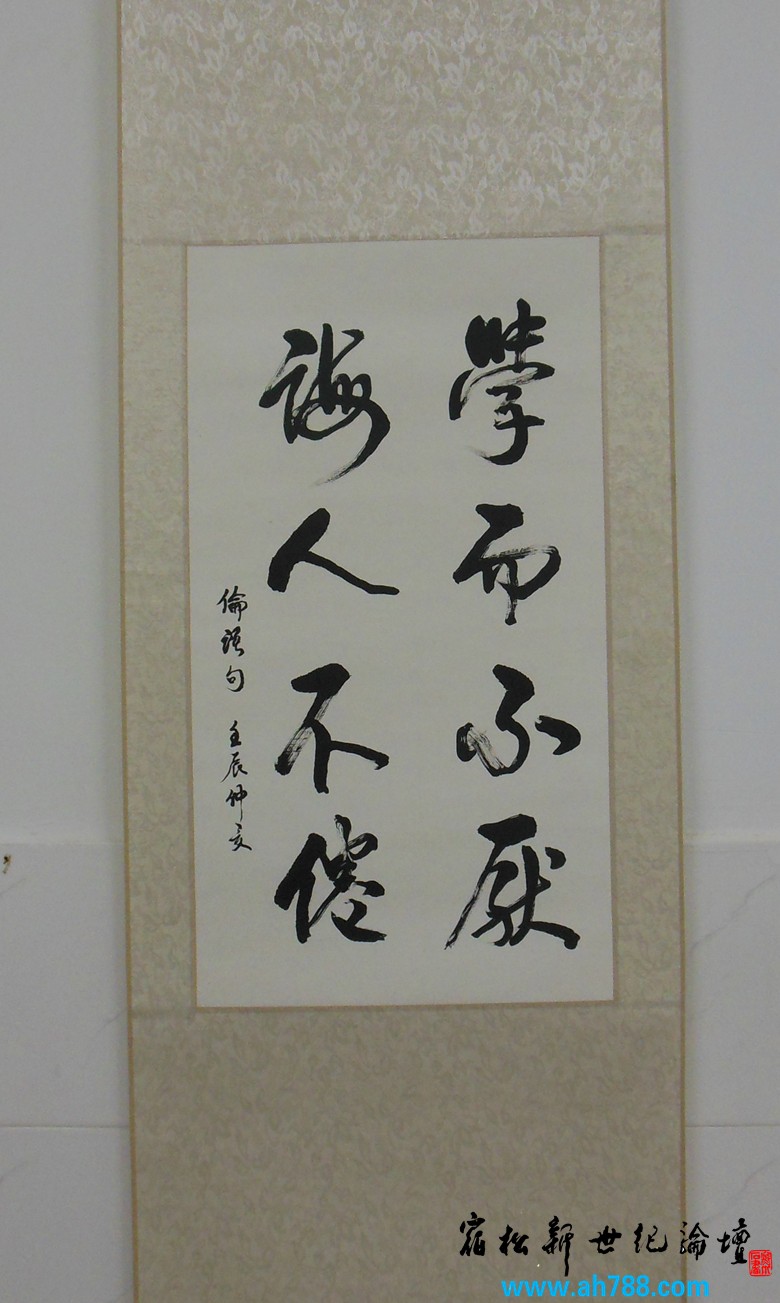 學而不厭
誨人不倦
倫語句 壬辰仲夏
宿松新世紀論壇
www.ah788.com